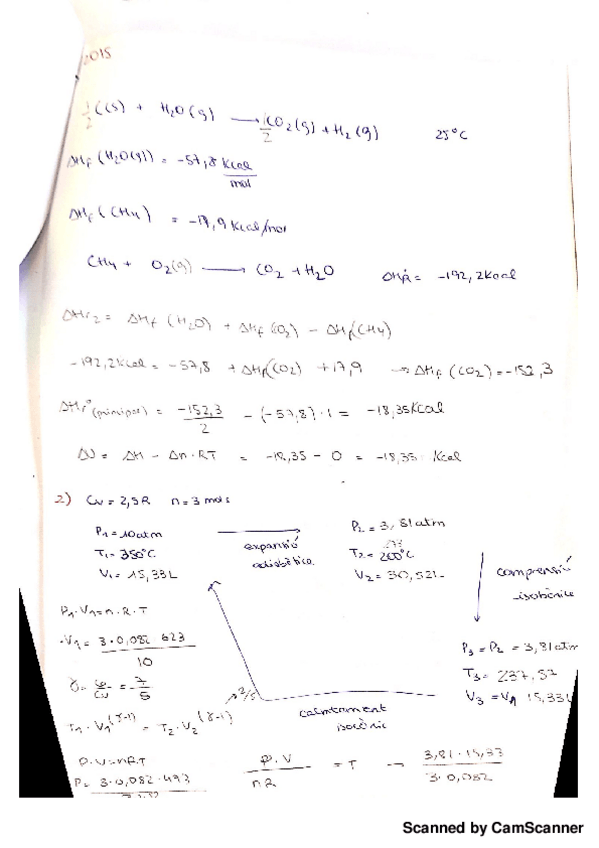 2015
1/2 C(s) + H2O(g) → 1/2 CO2(g) + H2(g) 25°C
ΔHf (H2O(g)) = -57,8 Kcal/mol
ΔHf (CH4) = -17,9 Kcal/mol
CH4 + O2(g) → CO2 + H2O ΔHR° = -192,2Kcal
ΔHr2 = ΔHf (H2O) + ΔHf (O2) - ΔHf (CH4)
-192,2Kcal = -57,8 + ΔHf(CO2) + 17,9 → ΔHf (CO2) = -152,3
ΔHr°(principal) = -152,3/2 - (-57,8)·1 = -18,35Kcal
ΔU = ΔH - Δn·RT = -18,35 - 0 = -18,35 Kcal
2) Cv = 2,5R n = 3 mols
P1 = 10atm
T1 = 350°C
V1 = 15,33L
expansió
adiabàtica
P2 = 3,81atm
T2 = 200°C
V2 = 30,52L
compressió
isobàrica
P1·V1 = n.R.T
V1 = 3·0,082 623/10
γ = Cp/Cv = 7/5
P3 = P2 = 3,81atm
T3 = 237,57
V3 = V1 15,33L
2/5
calentament
isocòric
T1·V1^(γ-1) = T2·V2^(γ-1)
P.V = nRT
P = 3·0,082·493
P.V/nR = T → 3,81·15,33/3·0,082
Scanned by CamScanner